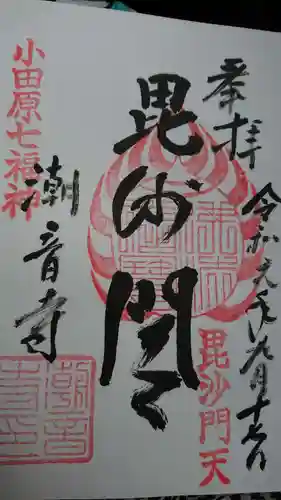 奉拝
令和元年九月十七日
毘沙門天
毘沙門天
小田原七福神
潮音寺
潮音寺印